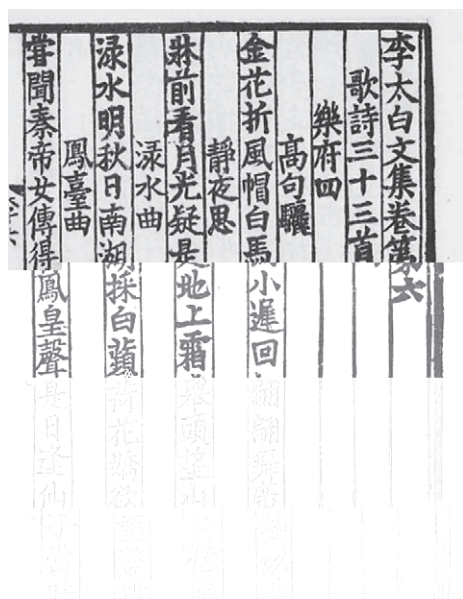 李太白文集卷第六
歌詩三十三首
樂府四
髙句驪
金花折風帽白馬小遲回翩翩舞
靜夜思
牀前看月光疑是地上霜舉頭望山
淥水曲
淥水明秋日南湖採白蘋荷花嬌欲
鳳臺曲
甞聞秦帝女傳得鳳皇聲是日逢仙